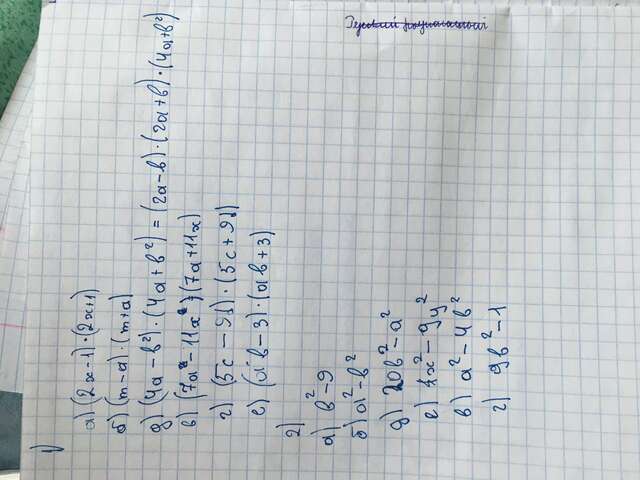 1)
а) (2x-1)·(2x+1)
б) (m-a)·(m+a)
д) (4a-b²)·(4a+b²) = (2a-b)·(2a+b)·(4a+b²)
в) (7a-11x)·(7a+11x)
г) (5c-9)·(5c+9)
е) (ab-3)·(ab+3)
2)
а) b²-9
б) a²-b²
д) 20b²-a²
е) 4x²-9y²
в) a²-4b²
г) 9b²-1